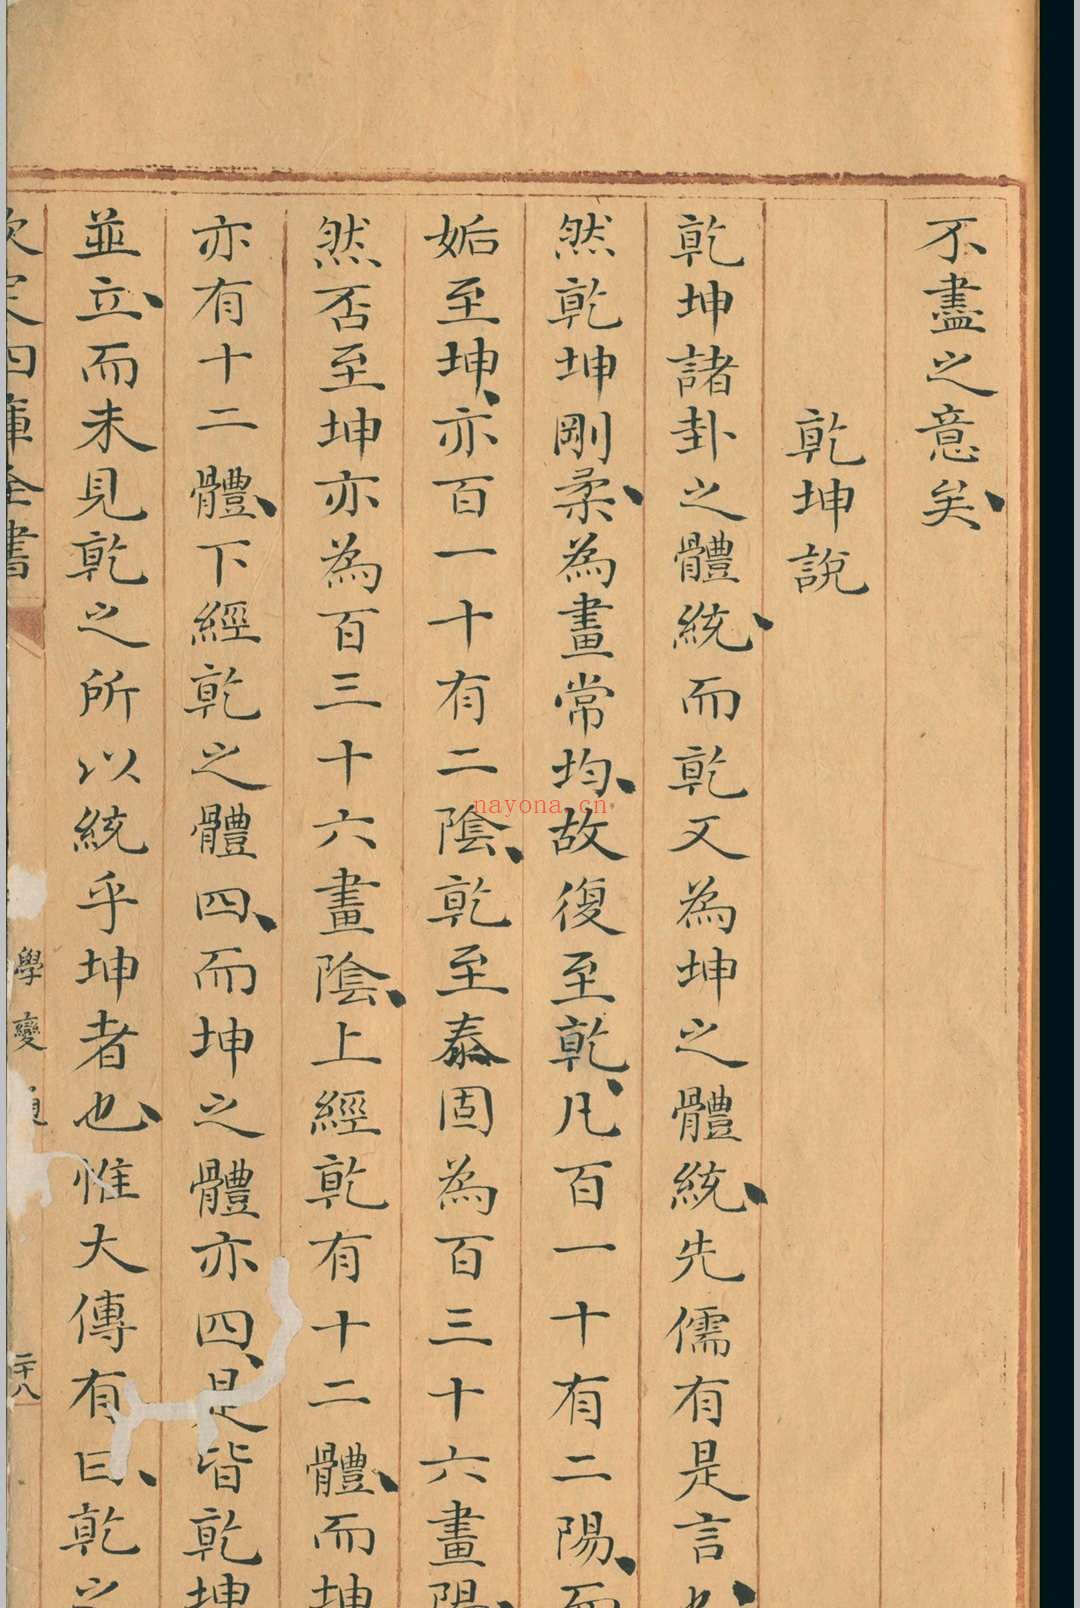 不盡之意矣
乾坤說
乾坤諸卦之體統而乾又為坤之體統先儒有是言也
然乾坤剛柔為畫常均故復至乾凡百一十有二陽而
姤至坤亦百一十有二陰乾至泰固為百三十六畫陽
然否至坤亦為百三十六畫陰上經乾有十二體而坤
亦有十二體下經乾之體四而坤之體亦四是皆乾坤
並立而未見乾之所以統乎坤者也惟大傳有曰乾之
欽定四庫全書
學變通
二十八
nayona.cn